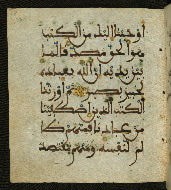 أوحينا إليك من الكتب
هو الحق مصدقا لما
بين يديه إن الله بعباده
لخبير بصير ثم أورثنا
الكتب الذين اصطفينا
من عبادنا فمنهم ظا
لم لنفسه ومنهم مقتصد